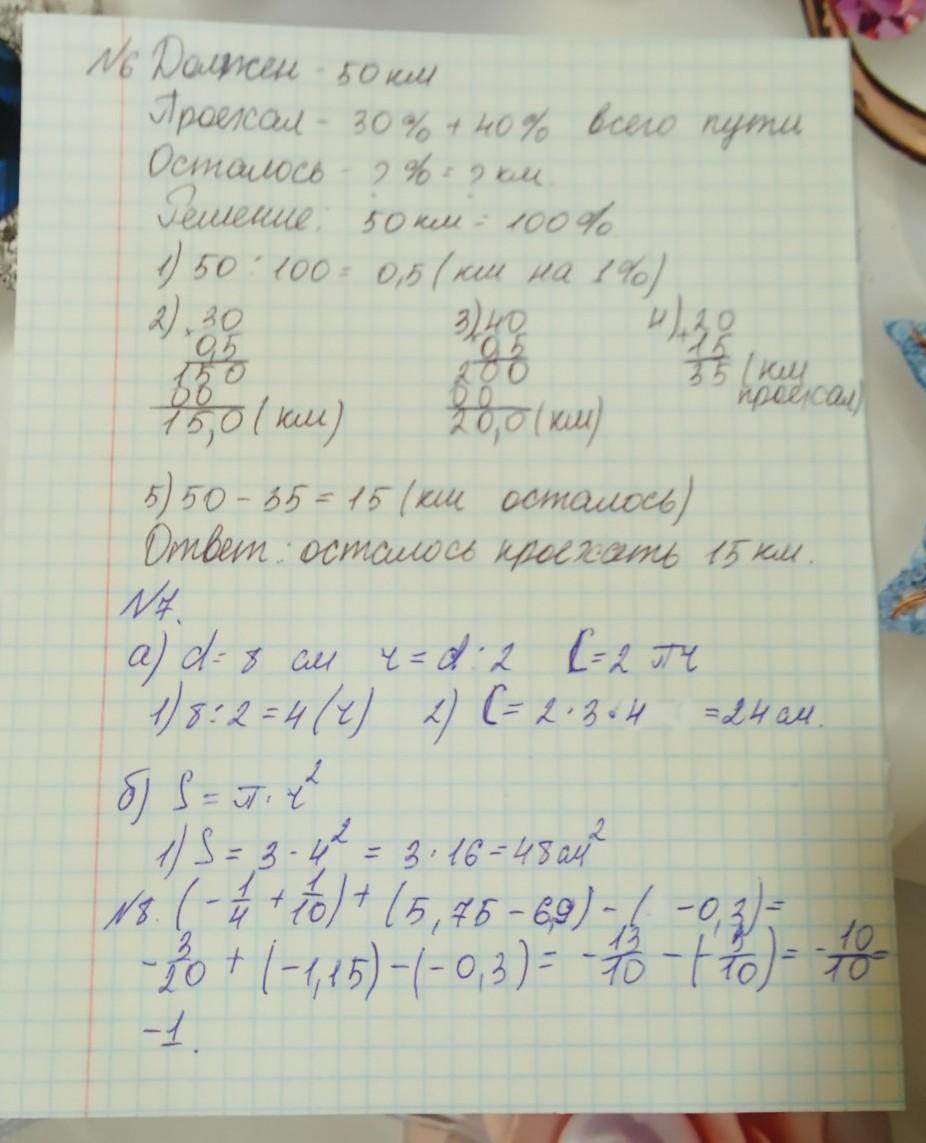 №6 Должен - 50 км
Проехал - 30% + 40% всего пути
Осталось - ? % = ? км.
Решение: 50 км = 100%
1) 50 : 100 = 0,5 (км на 1%)
2) × 30 3) × 40 4) + 20
0,5 0,5 15
150 200 35 (км
00 00 проехал)
15,0 (км) 20,0 (км)
5) 50 - 35 = 15 (км осталось)
Ответ: осталось проехать 15 км.
№7.
а) d = 8 см r = d : 2 C = 2 πr
1) 8 : 2 = 4 (r) 2) C = 2 · 3 · 4 = 24 см.
б) S = π · r²
1) S = 3 · 4² = 3 · 16 = 48 см²
№8. (- 1/4 + 1/10) + (5,75 - 6,9) - ( -0,3) =
- 3/20 + (-1,15) - (-0,3) = - 13/10 - (- 3/10) = - 10/10 =
-1.